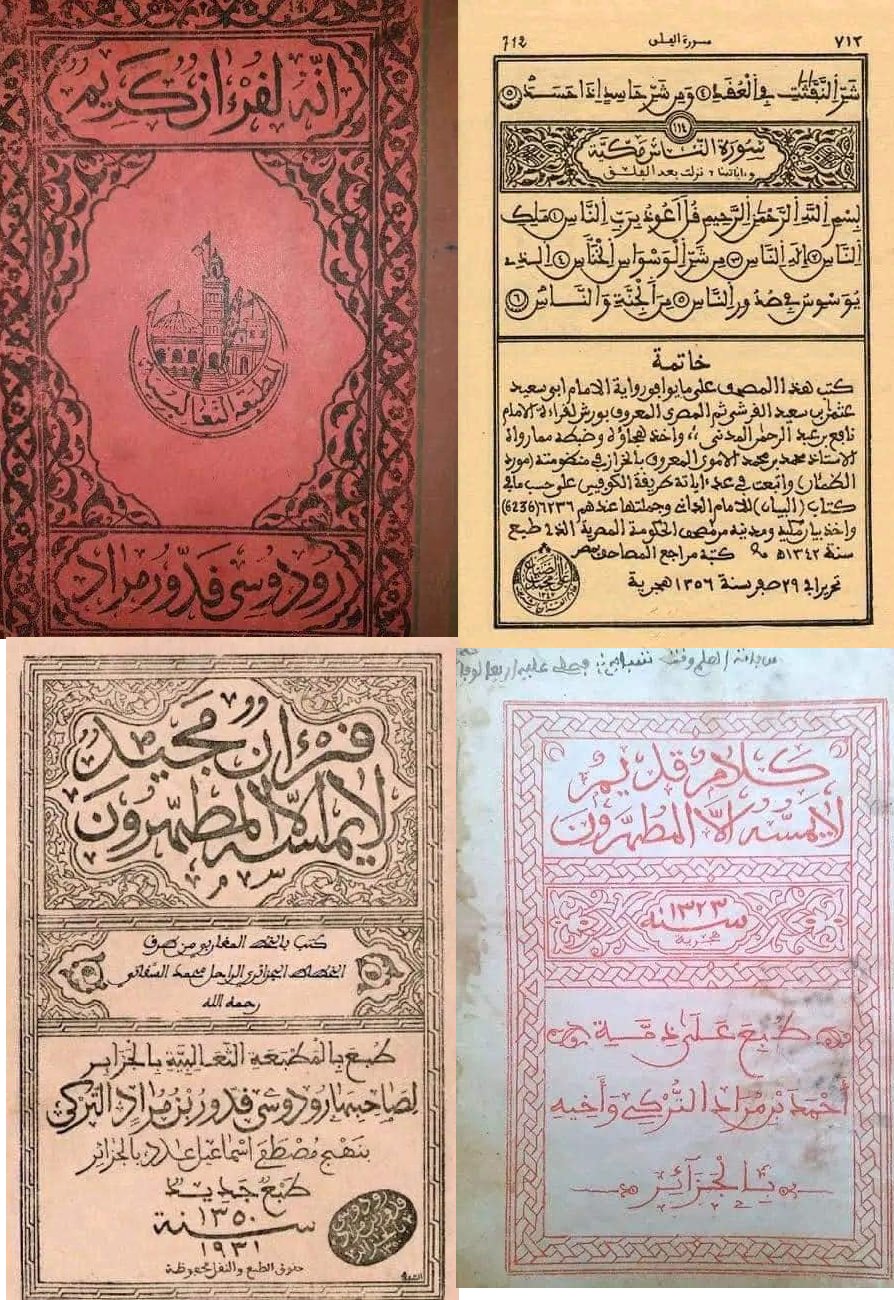 انه لقرءان كريم
المطبعة الثعالبية
رودوسي قدور مراد
712 سورة الفلق ٧١٢
شر النفثت في العقد ٤ ومن شر حاسد اذا حسد ٥
١١٤
سورة الناس مكية
وءاياتها ٦ نزلت بعد الفلق
بسم الله الرحمن الرحيم قل اعوذ برب الناس ١ ملك
الناس ٢ اله الناس ٣ من شر الوسواس الخناس ٤ الذي
يوسوس في صدور الناس ٥ من الجنة والناس ٦
خاتمة
كتب هذا المصحف على ما يوافق رواية الامام ابي سعيد
عثمان بن سعيد القرشي ثم المصري المعروف بورش لقراءة الامام
نافع بن عبد الرحمن المدني، واخذ هجاؤه وضبطه مما رواه
الاستاذ محمد بن محمد الاموي المعروف بالخراز في منظومته (مورد
الظمئان) واتبعت في عدد ءاياته طريقة الكوفيين على حسب ما في
كتاب (البيان) للامام الداني وجملتها عندهم ٦٢٣٦ (6236)
واخذ بيان مكيه ومدنيه من مصحف الحكومة المصرية الذي طبع
سنة ١٣٤٢ ه‍ كتبه مراجع المصاحف بمصر
علي محمد الضباع
تحريرا في ٢٩ صفر سنة ١٣٥٦ هجرية
قرءان مجيد
لا يمسه الا المطهرون
كتب بالخط المغاربي من طرف
الخطاط الجزائري الراحل محمد السفاتي
رحمه الله
طبع بالمطبعة الثعالبية بالجزاير
لصاحبها رودوسي قدور بن مراد التركي
بنهج مصطفى اسماعيل عدد بالجزائر
طبع جديد
سنة ١٣٥٠
١٩٣١
حقوق الطبع والنقل محفوظة
كلام قديم
لا يمسه الا المطهرون
سنة ١٣٢٣
هجرية
طبع على ذمة
أحمد بن مراد التركي وأخيه
بالجزائر